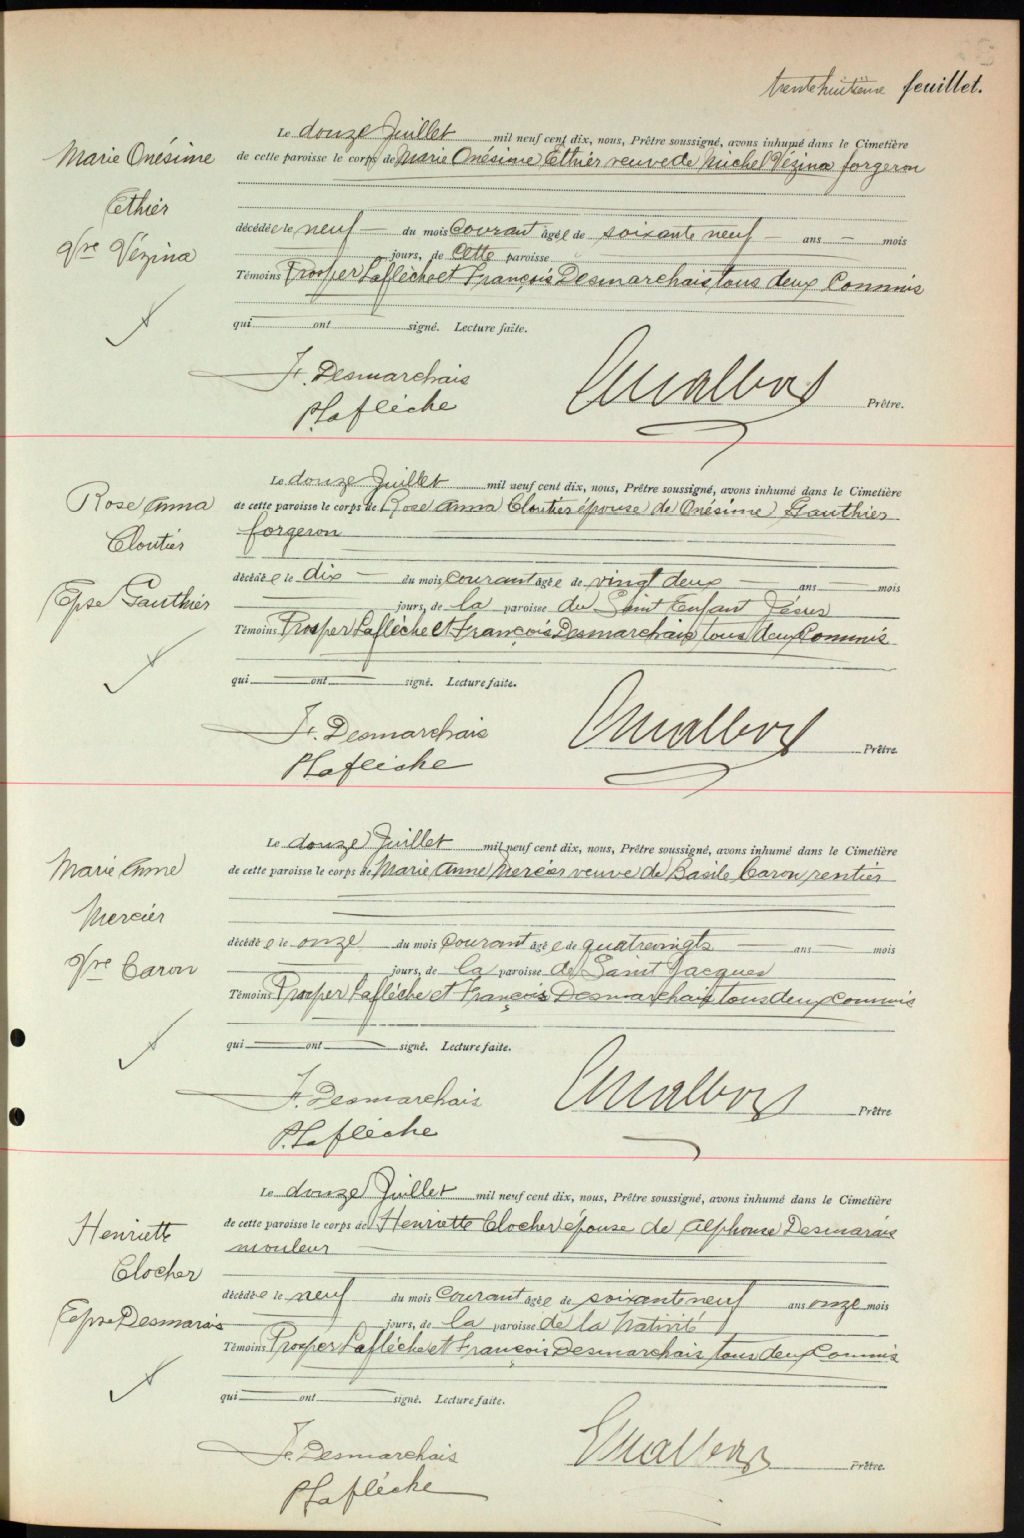 trentehuitième feuillet.
Le douze Juillet mil neuf cent dix, nous, Prêtre soussigné, avons inhumé dans le Cimetière
Marie Onésime
de cette paroisse le corps de Marie Onésime Ethier veuve de Michel Vézina forgeron
Ethier
décédée le neuf — du mois courant âgée de soixante neuf — ans — mois
Vve Vézina
jours, de cette paroisse
Témoins Prosper Laflèche et François Desmarchais tous deux Commis
qui ont signé. Lecture faite.
F. Desmarchais
P. Laflèche
Prêtre.
Le douze Juillet mil neuf cent dix, nous, Prêtre soussigné, avons inhumé dans le Cimetière
Rose Anna
de cette paroisse le corps de Rose Anna Cloutier épouse de Onésime Gauthier
forgeron
Cloutier
décédée le dix — du mois courant âgée de vingt deux — ans — mois
Epse Gauthier
jours, de la paroisse du Saint Enfant Jésus
Témoins Prosper Laflèche et François Desmarchais tous deux Commis
qui — ont — signé. Lecture faite.
F. Desmarchais
P Laflèche
Prêtre.
Le douze Juillet mil neuf cent dix, nous, Prêtre soussigné, avons inhumé dans le Cimetière
Marie Anne
de cette paroisse le corps de Marie Anne Mercier veuve de Basile Caron rentier
Mercier
décédée le onze du mois courant âgée de quatrevingts — ans — mois
Vve Caron
jours, de la paroisse de Saint Jacques
Témoins Prosper Laflèche et François Desmarchais tous deux commis
qui — ont — signé. Lecture faite.
F. Desmarchais
P. Laflèche
Prêtre
Le douze Juillet mil neuf cent dix, nous, Prêtre soussigné, avons inhumé dans le Cimetière
Henriette
de cette paroisse le corps de Henriette Clocher épouse de Alphonse Desmarais
mouleur —
Clocher
décédée le neuf du mois courant âgée de soixante neuf ans onze mois
Epse Desmarais
jours, de la paroisse de la Nativité
Témoins Prosper Laflèche et François Desmarchais tous deux Commis
qui — ont — signé. Lecture faite.
F. Desmarchais
P Laflèche
Prêtre.